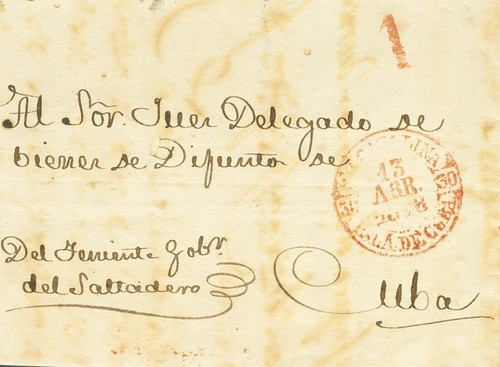 1
Al Sõr. Juer Delegado de
bienes de Difunto de
13
ABR.
ISLA DE CUBA
Del Teniente Gobr.
del Saltadero
Cuba